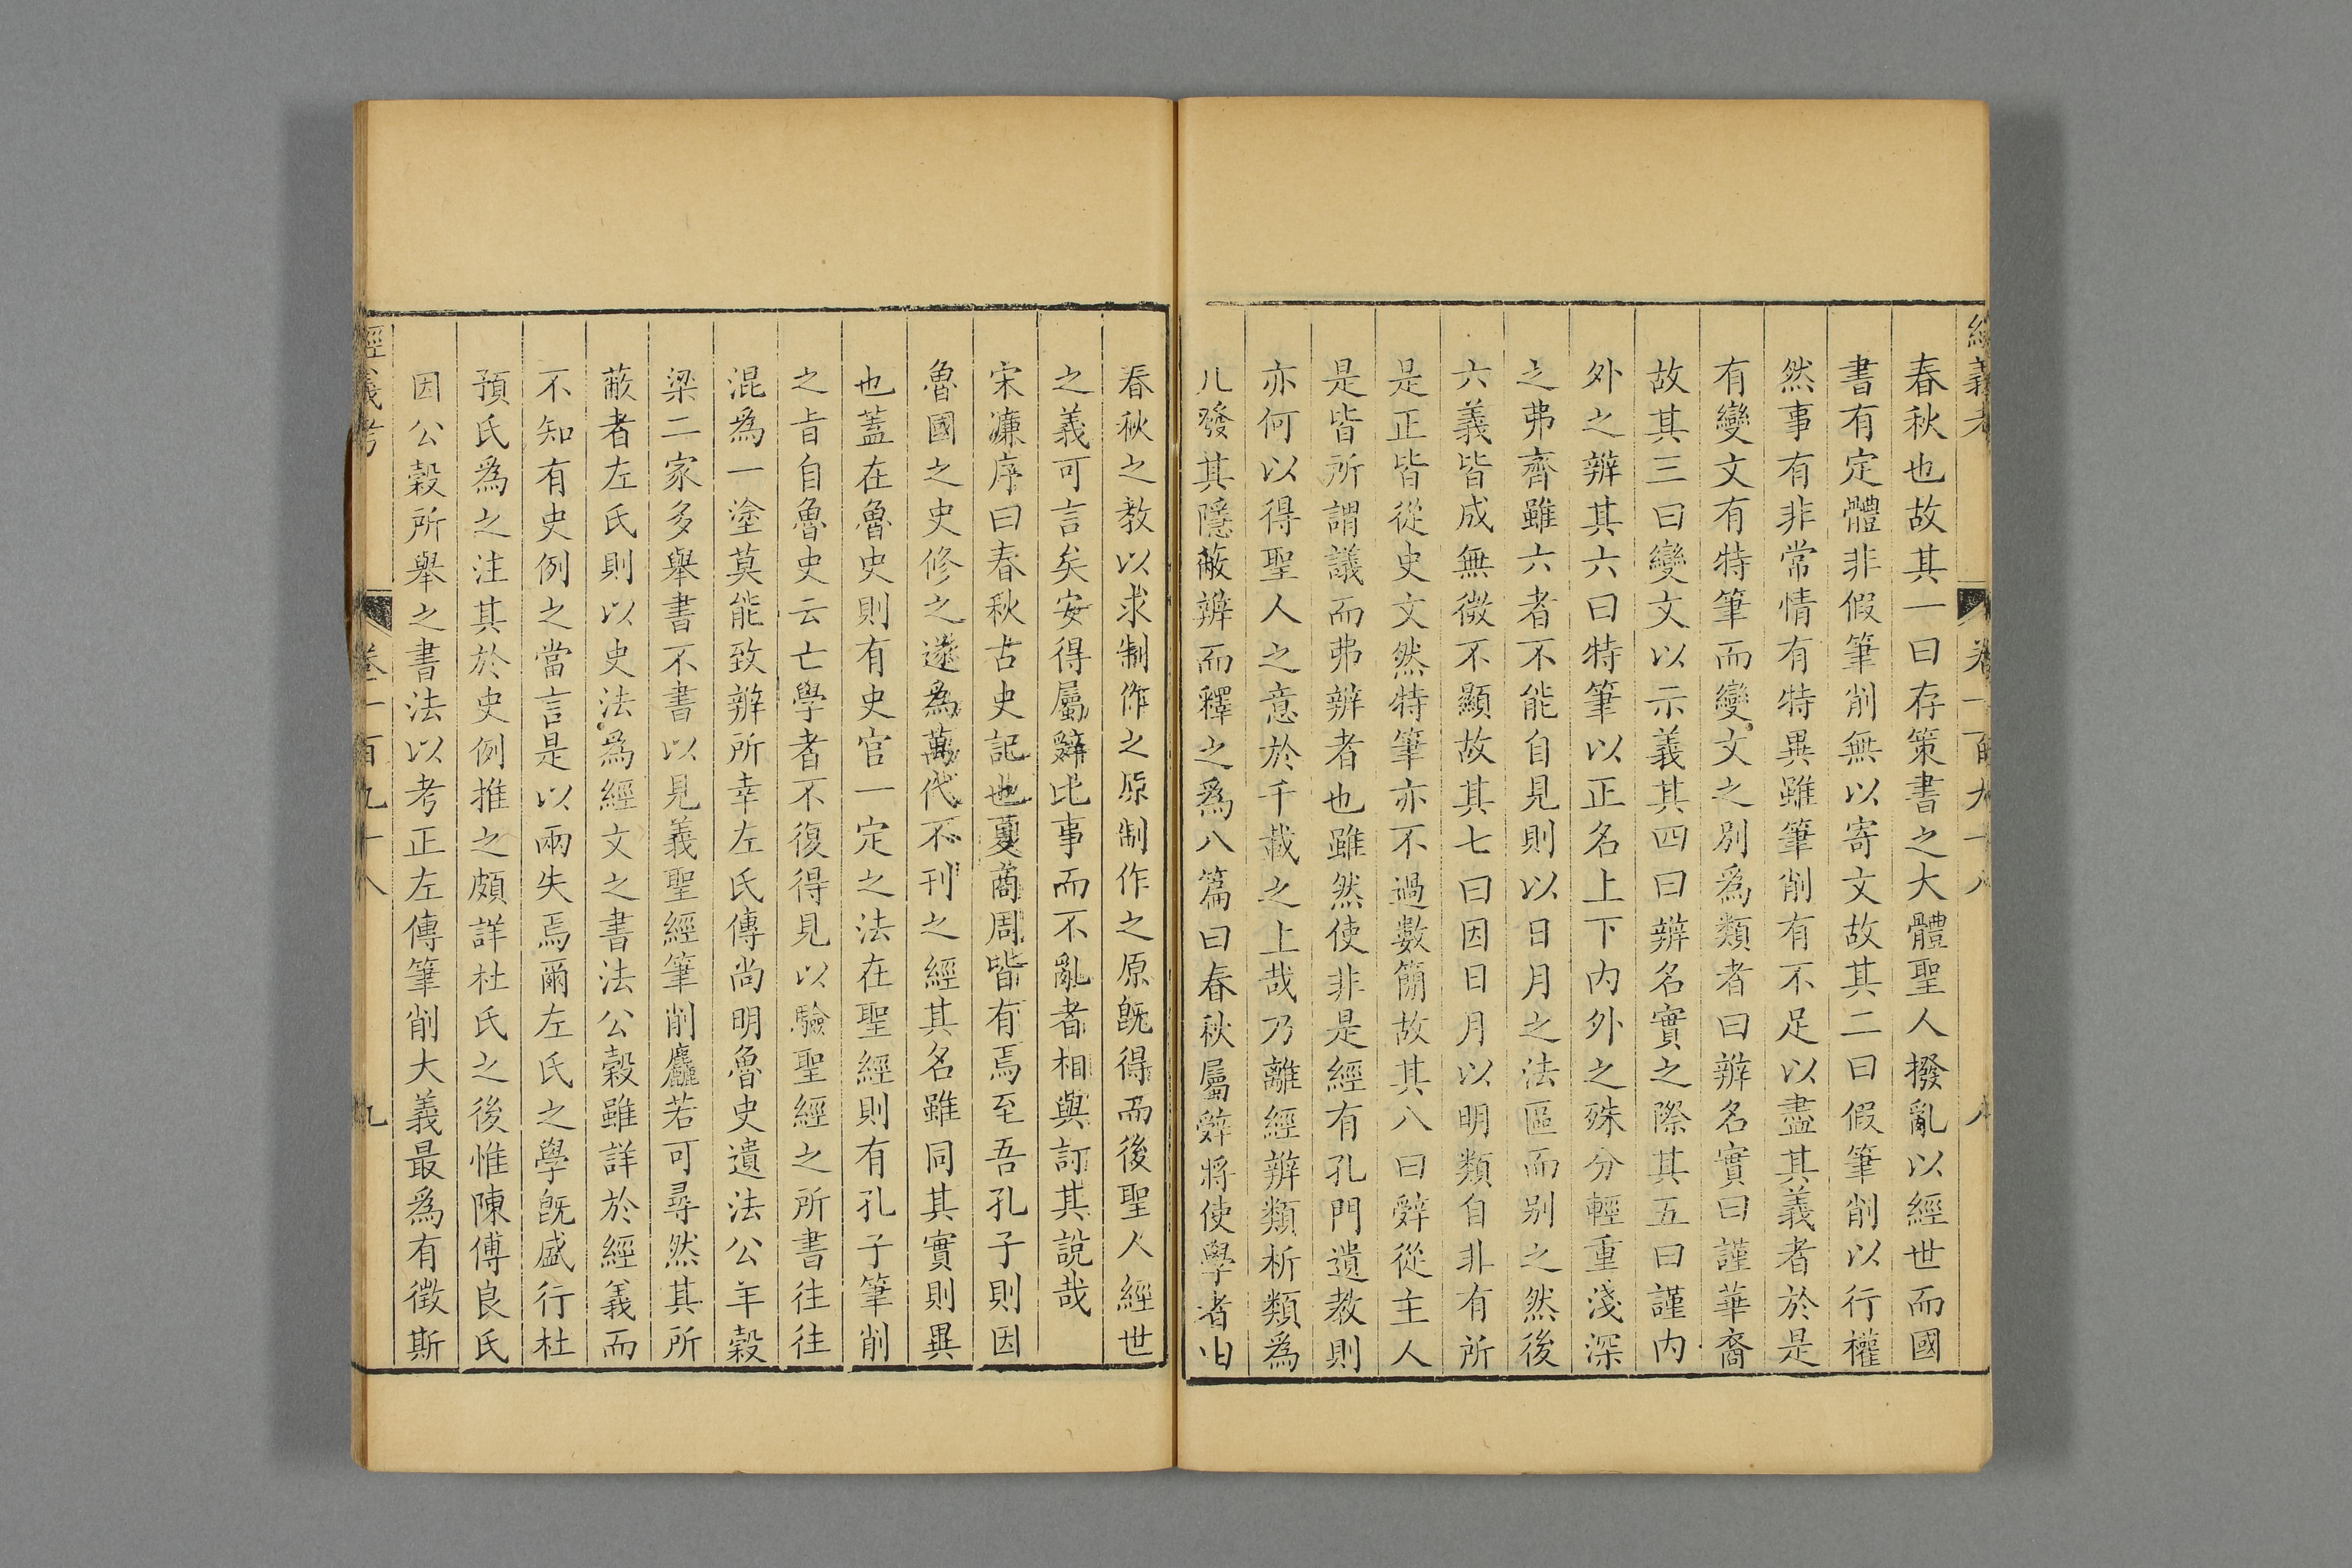 經義考 卷一百九十八 八
春秋也故其一曰存策書之大體聖人撥亂以經世而國
書有定體非假筆削無以寄文故其二曰假筆削以行權
然事有非常情有特異雖筆削有不足以盡其義者於是
有變文有特筆而變文之別為類者曰辨名實曰謹華裔
故其三曰變文以示義其四曰辨名實之際其五曰謹內
外之辨其六曰特筆以正名上下內外之殊分輕重淺深
之弗齊雖六者不能自見則以日月之法區而别之然後
六義皆成無微不顯故其七曰因日月以明類自非有所
是正皆從史文然特筆亦不過數簡故其八曰辭從主人
是皆所謂議而弗辨者也雖然使非是經有孔門遺教則
亦何以得聖人之意於千載之上哉乃離經辨類析類為
凡發其隱蔽辨而釋之為八篇曰春秋屬辭將使學者由
春秋之教以求制作之原制作之原旣得而後聖人經世
之義可言矣安得屬辭比事而不亂者相與訂其說哉
宋濂序曰春秋古史記也夏商周皆有焉至吾孔子則因
魯國之史修之遂為萬代不刊之經其名雖同其實則異
也蓋在魯史則有史官一定之法在聖經則有孔子筆削
之㫖自魯史云亡學者不復得見以驗聖經之所書往往
混為一塗莫能致辨所幸左氏傳尚明魯史遺法公羊穀
梁二家多舉書不書以見義聖經筆削麤若可尋然其所
蔽者左氏則以史法為經文之書法公穀雖詳於經義而
不知有史例之當言是以兩失焉爾左氏之學旣盛行杜
預氏為之注其於史例推之頗詳杜氏之後惟陳傅良氏
因公穀所舉之書法以考正左傳筆削大義最為有徵斯
經義考 卷一百九十八 九